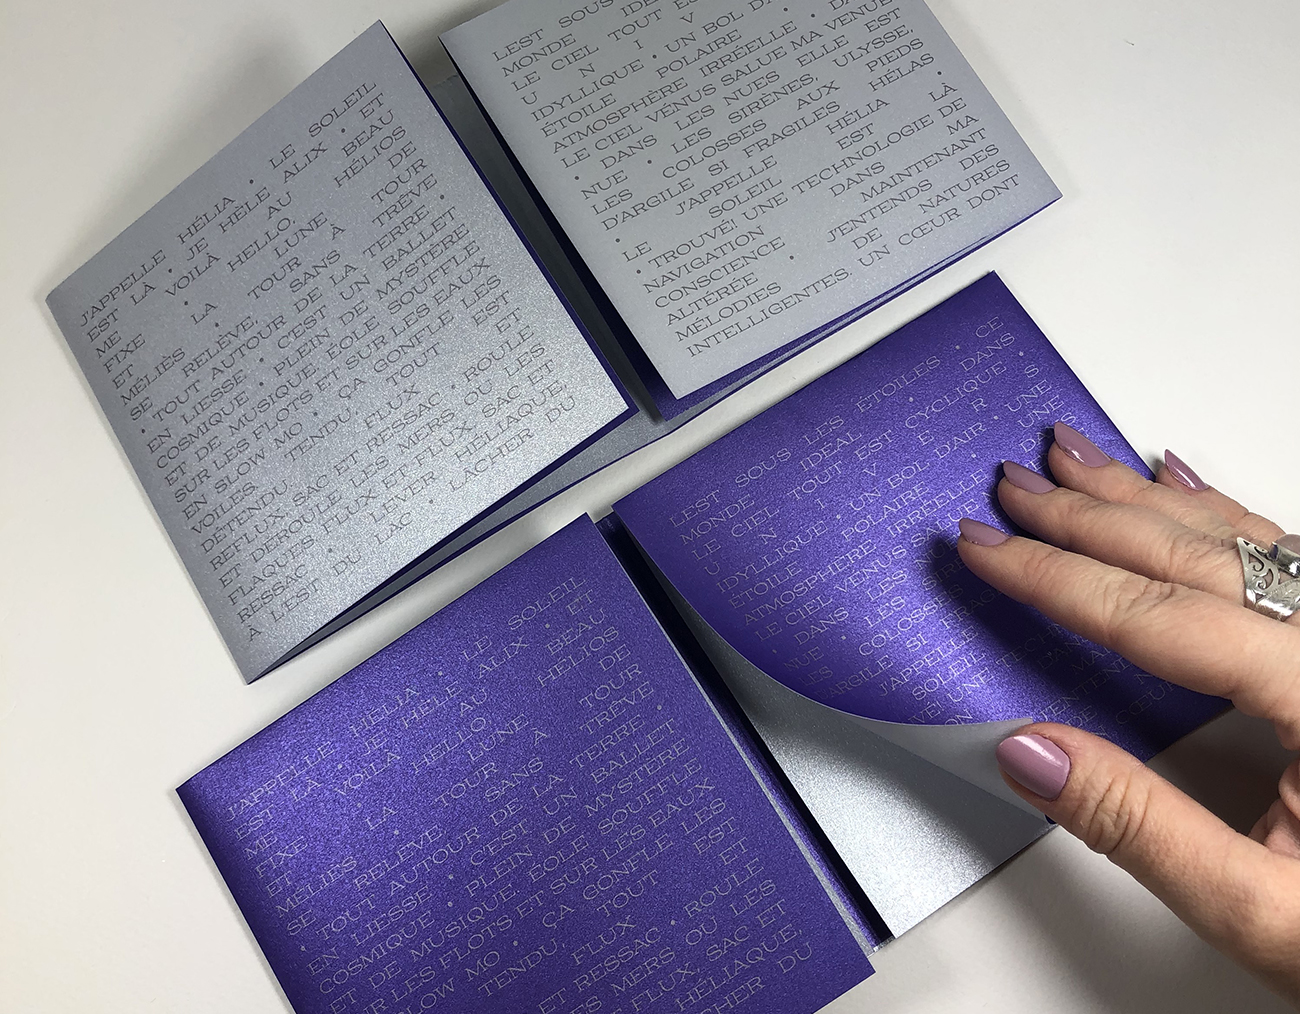 J'APPELLE HÉLIA • LE SOLEIL
EST LÀ • JE HÈLE ALIX • ET
ME VOILÀ AU BEAU
FIXE HELLO, HÉLIOS
ET LA LUNE DE
MÉLIÈS TOUR À TOUR
SE RELÈVE, SANS TRÊVE
• TOUT AUTOUR DE LA TERRE •
EN LIESSE • C'EST UN BALLET
COSMIQUE • PLEIN DE MYSTÈRE
ET DE MUSIQUE, ÉOLE SOUFFLE
SUR LES FLOTS ET SUR LES EAUX
EN SLOW MO • ÇA GONFLE LES
VOILES, TENDU, TOUT EST
DÉTENDU, FLUX ET
REFLUX SAC ET RESSAC • ROULE
ET DÉROULE LES MERS OU LES
FLAQUES FLUX ET FLUX, SAC ET
RESSAC • LEVER HÉLIAQUE,
À L'EST DU LAC • LÂCHER DU
LEST SOUS
MONDE IDÉ
LE CIEL TOUT ES
U N I V
IDYLLIQUE • UN BOL D'A
ÉTOILE POLAIRE • DA
ATMOSPHÈRE IRRÉELLE •
LE CIEL VÉNUS SALUE MA VENUE
• DANS LES NUES ELLE EST
NUE • LES SIRÈNES, ULYSSE,
LES COLOSSES AUX PIEDS
D'ARGILE SI FRAGILES HÉLAS •
J'APPELLE HÉLIA
• LE SOLEIL EST LÀ
• TROUVÉ! UNE TECHNOLOGIE DE
NAVIGATION DANS MA
CONSCIENCE MAINTENANT
ALTÉRÉE • J'ENTENDS DES
MÉLODIES DE NATURES
INTELLIGENTES. UN CŒUR DONT
LEST SOUS LES ÉTOILES • CE
MONDE IDÉAL • DANS
LE CIEL TOUT EST CYCLIQUE
U N I V E R S
IDYLLIQUE • UN BOL D'AIR • UNE
ÉTOILE POLAIRE • UNE
ATMOSPHÈRE IRRÉELLE • DANS
LE CIEL VÉNUS S
• DANS LES NU
NUE • LES SIRÈ
LES COLOSSES
ARGILE SI FRAG
J'APPELLE
SOLEIL
UNE TECH
J'APPELLE HÉLIA • LE SOLEIL
EST LÀ • JE HÈLE ALIX • ET
ME VOILÀ AU BEAU
FIXE HELLO, HÉLIOS
ET LA LUNE DE
MÉLIÈS TOUR À TOUR
SE RELÈVE, SANS TRÊVE
• TOUT AUTOUR DE LA TERRE •
EN LIESSE • C'EST UN BALLET
COSMIQUE • PLEIN DE MYSTÈRE
ET DE MUSIQUE, ÉOLE SOUFFLE
UR LES FLOTS ET SUR LES EAUX
SLOW MO • ÇA GONFLE LES
TENDU, TOUT EST
FLUX ET
ET RESSAC • ROULE
ES MERS OU LES
FLUX, SAC ET
HÉLIAQUE,
CHER DU